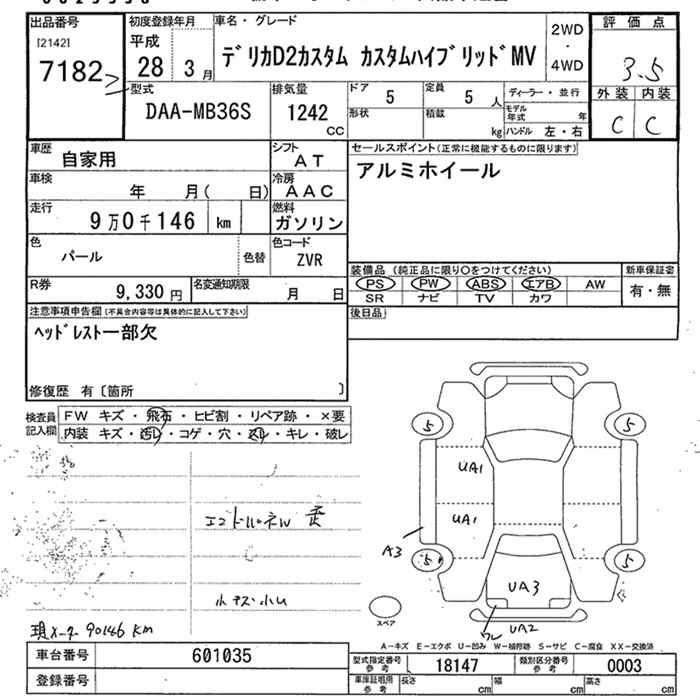 出品番号
[2142]
7182
初度登録年月
平成
28 3月
車名・グレード
デリカD2カスタム カスタムハイブリッドMV
2WD
・
4WD
評価点
3.5
外装 内装
C C
型式
DAA-MB36S
排気量
1242
CC
ドア 5
定員 5 人
形状
積載 kg
ディーラー・並行
モデル年式 年
ハンドル 左・右
車歴 自家用
シフト AT
車検 年 月( 日)
冷房 AAC
走行 9万0千146 km
燃料 ガソリン
色 パール
色替
色コード ZVR
R券 9,330円
名変通知期限 月 日
セールスポイント(正常に機能するものに限ります)
アルミホイール
装備品(純正品に限り○をつけてください)
新車保証書
PS PW ABS エアB AW
有・無
SR ナビ TV カワ
後日品
注意事項申告欄(不具合内容等は具体的に記入して下さい)
ヘッドレスト一部欠
修復歴 有〔箇所 〕
検査員記入欄
FW キズ・飛石・ヒビ割・リペア跡・×要
内装 キズ・汚レ・コゲ・穴・スレ・キレ・破レ
小キズ小凹
現メーター 90146 KM
5 5
UA1
UA1
A3
5 5
UA3
UA2
スペア
A-キズ E-エクボ U-凹み W-補修跡 S-サビ C-腐食 XX-交換済
車台番号 601035
登録番号
型式指定番号 参考 18147
類別区分番号 参考 0003
車庫証明用 参考
長さ cm
幅 cm
高さ cm